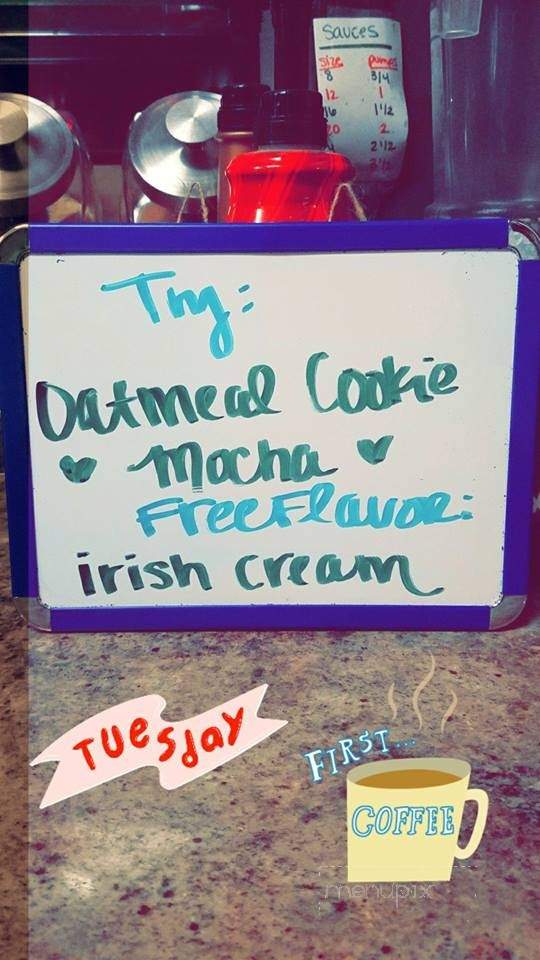 Sauces
size pumps
8 3/4
12 1
16 1 1/2
20 2
2 1/2
3 1/2
Try:
Oatmeal Cookie
♥ Mocha ♥
Free Flavor:
irish cream
TUesday
FIRST...
COFFEE
menupix